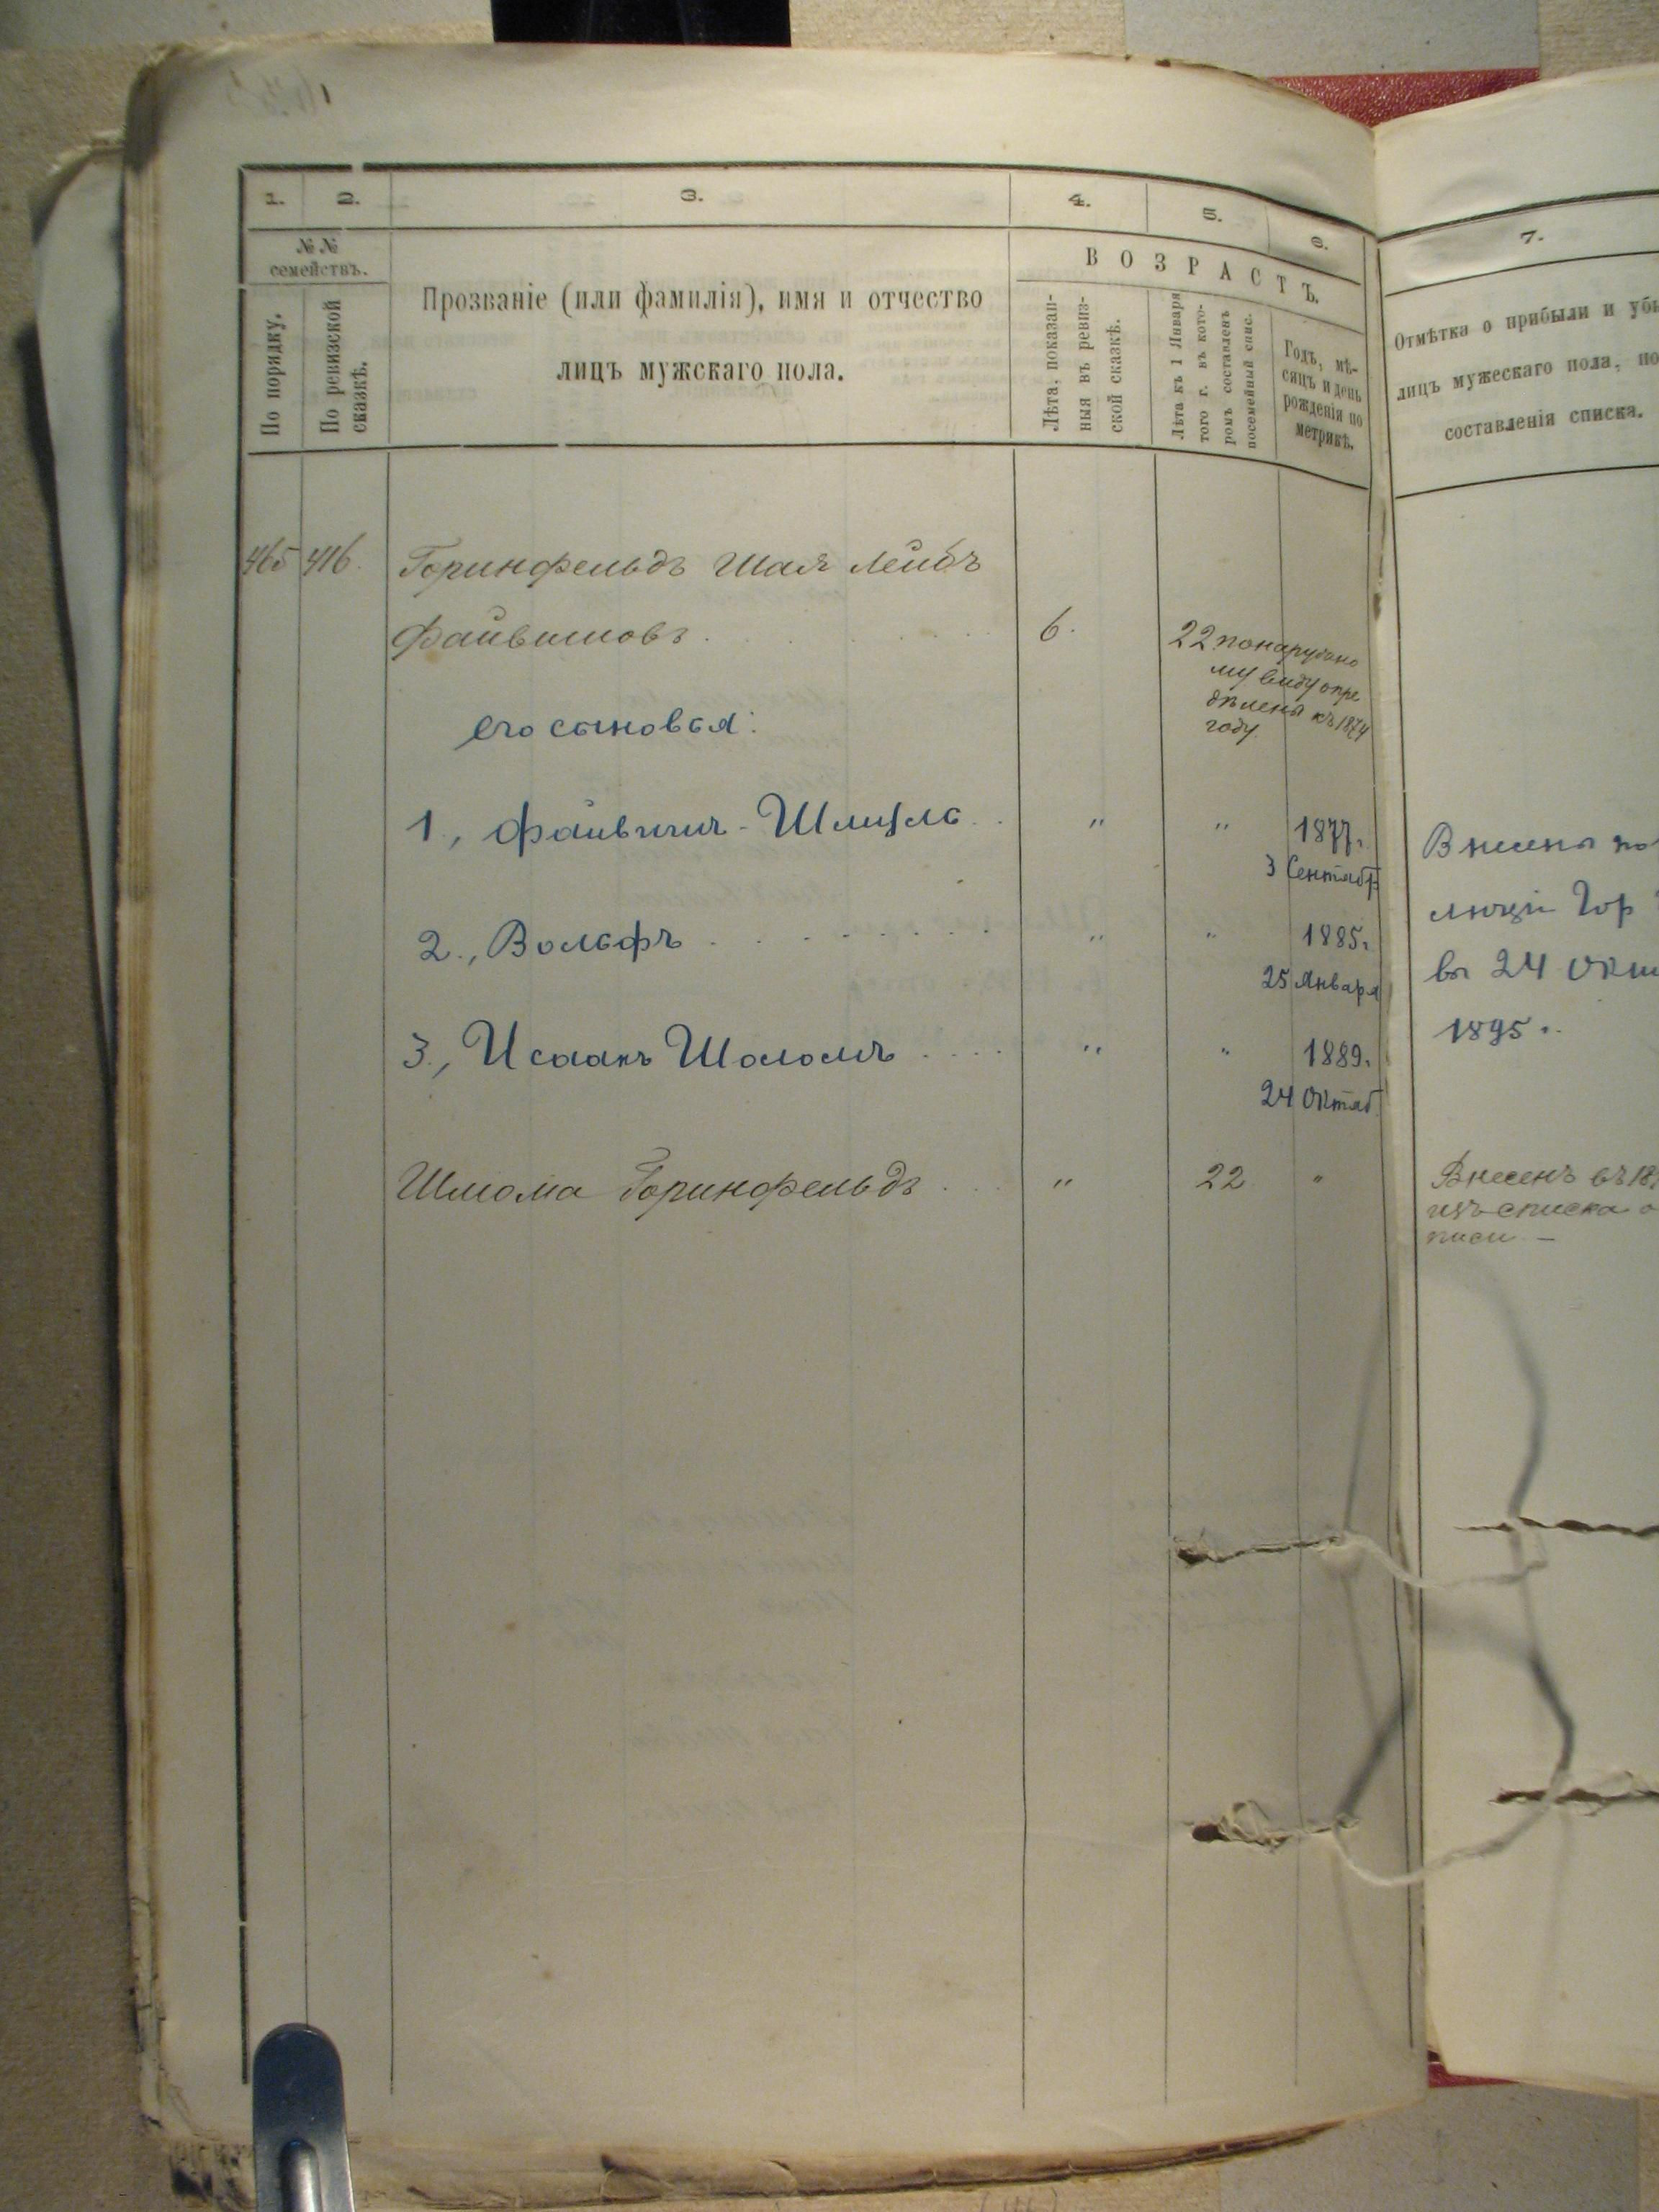 1.
2.
3.
4.
5.
6.
7.
№ №
семействъ.
По порядку.
По ревизской
сказкѣ.
Прозваніе (или фамилія), имя и отчество
лицъ мужскаго пола.
ВОЗРАСТЪ.
Лѣта, показан-
ныя въ ревиз-
ской сказкѣ.
Лѣта къ 1 Января
того г. въ кото-
ромъ составленъ
посемейный спис.
Годъ, мѣ-
сяцъ и день
рожденія по
метрикѣ.
Отмѣтка о прибыли и убы
лицъ мужескаго пола, по
составленія списка.
465 416. Горинфельдъ Шая Лейбъ
Файвишовъ 6. 22 по наружно
му виду опре
дѣлены къ 1874
году.
его сыновья:
1, Файвишъ-Шмуль " " 1877.
3 Сентябр
2., Вольфъ " " 1885.
25 Января
3, Исаакъ Шоломъ " " 1889.
24 Октяб
Внесены по
люціи Гор
въ 24 Окт
1895.
Шлома Горинфельдъ " 22 "
Внесенъ въ 18
изъ списка о
писи —